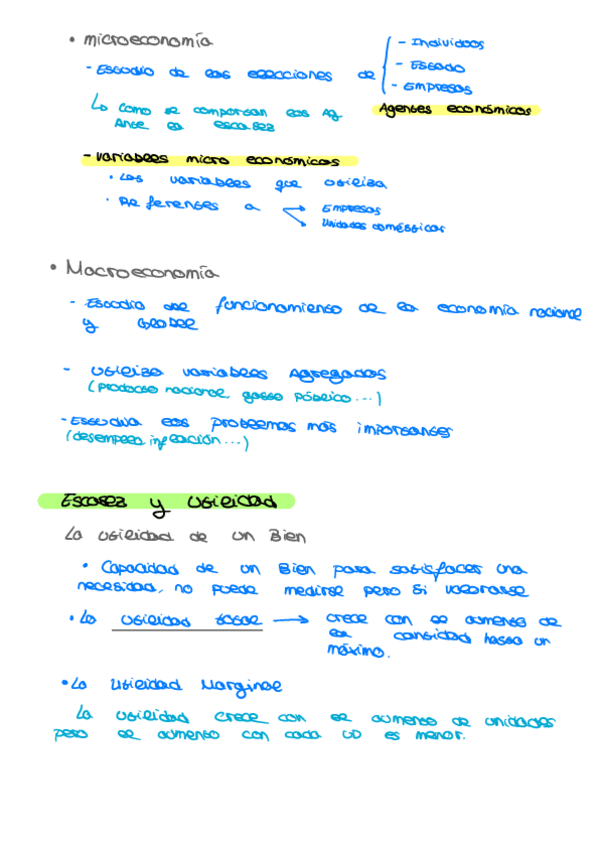 • microeconomía
- Estudio de las elecciones de
- Individuos
- Estado
- Empresas
Agentes económicos
↳ Como se comportan los Ag
Ante la escasez
- Variables micro económicas
• Las variables que utiliza
• Referentes a
Empresas
Unidades domésticas
• Macroeconomía
- Estudio del funcionamiento de la economía nacional
y Global
- Utiliza variables Agregadas
(producto nacional, gasto público...)
- Estudia los problemas más importantes
(desempleo, inflación...)
Escasez y Utilidad
La utilidad de un Bien
• Capacidad de un Bien para satisfacer una
necesidad, no puede medirse pero si valorarse
• La utilidad total → crece con el aumento de
la cantidad hasta un
máximo.
• La Utilidad Marginal
La utilidad crece con el aumento de unidades
pero el aumento con cada UD es menor.